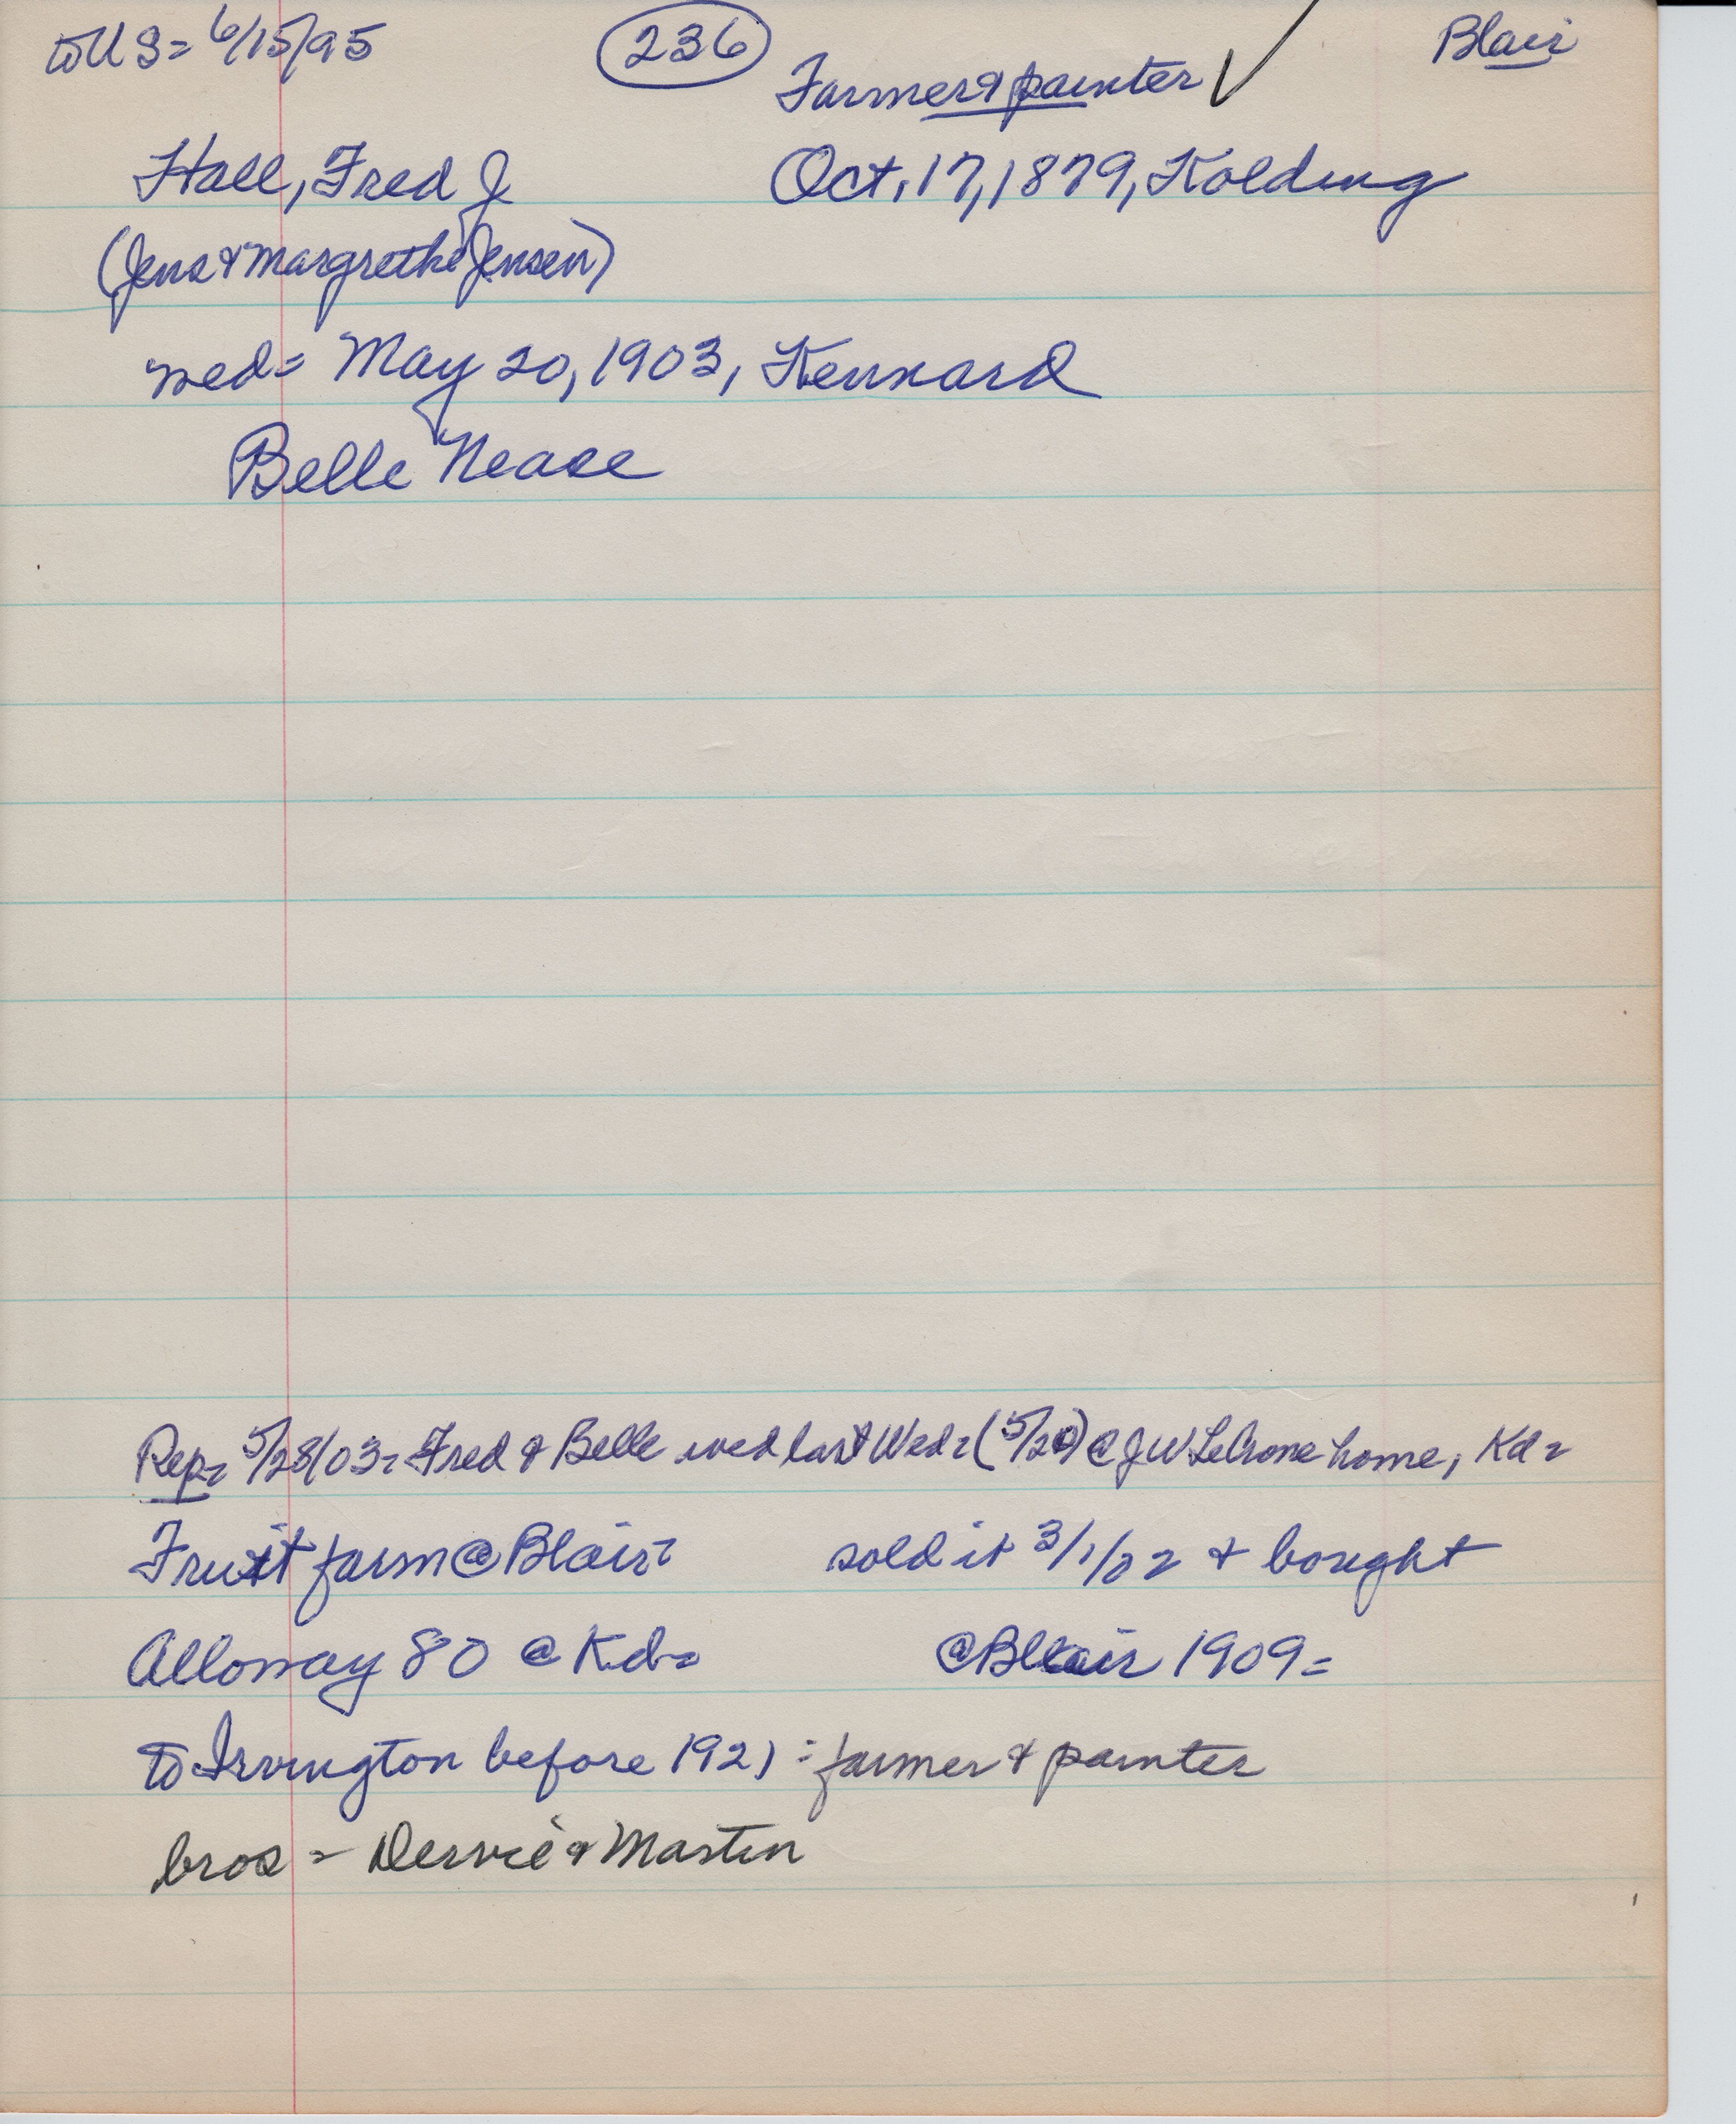 to U S= 6/15/95 (236) Blair
Farmer & painter ✓
Hall, Fred J Oct. 17, 1879, Kolding
(Jens & Margrethe Jensen)
wed= May 20, 1903, Kennard
Belle Nease
Rep= 5/28/03= Fred & Belle wed last Wed= (5/20) @ J W LeCrone home, Kd=
Fruit farm @ Blair= sold it 3/1/22 & bought
Alloway 80 @ Kd= @ Blair 1909=
to Irvington before 1921 = farmer & painter
bros = Dervie & Martin